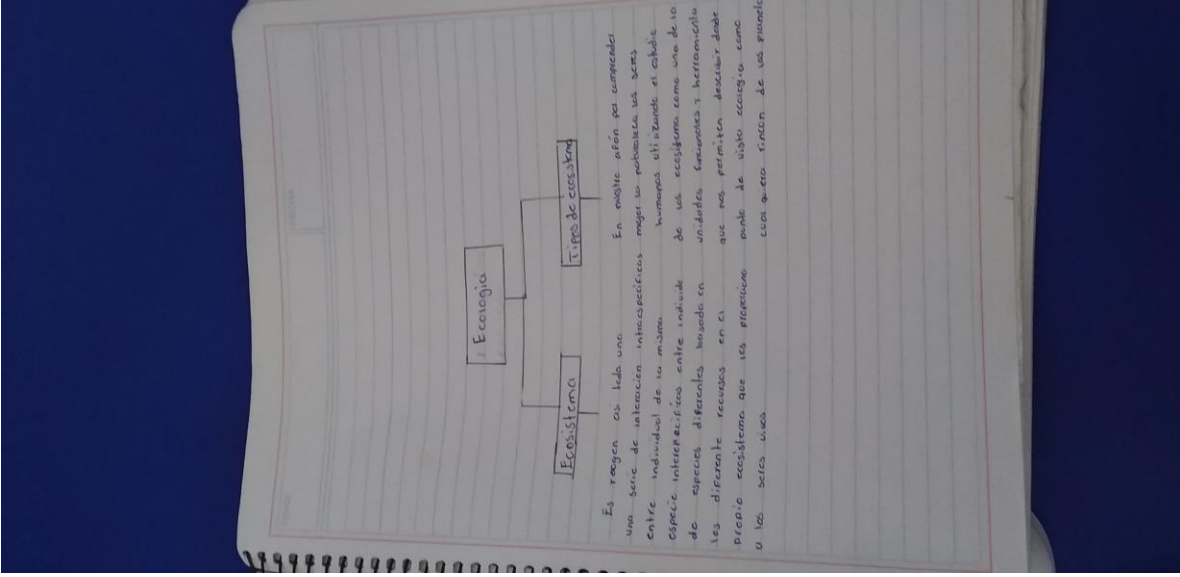 Ecologia
Ecosistema
Tipos de ecosistema
Es recgen asi toda una
una serie de interación intraespecificas
entre individual de la misma
especie interepecificas entre individe
de especies diferentes basada en
les diferente recursos en el
propio ecosistema que les proporciona
a los seres vivos
En nuestro afón por comprender
mejor la naturaleza los seres
humanos utilizando el estudio
de los ecosistema como una de la
unidades funcionales y herramienta
que nos permiten describir desde
punto de vista ecologia como
cual quiera rincon de los planeta